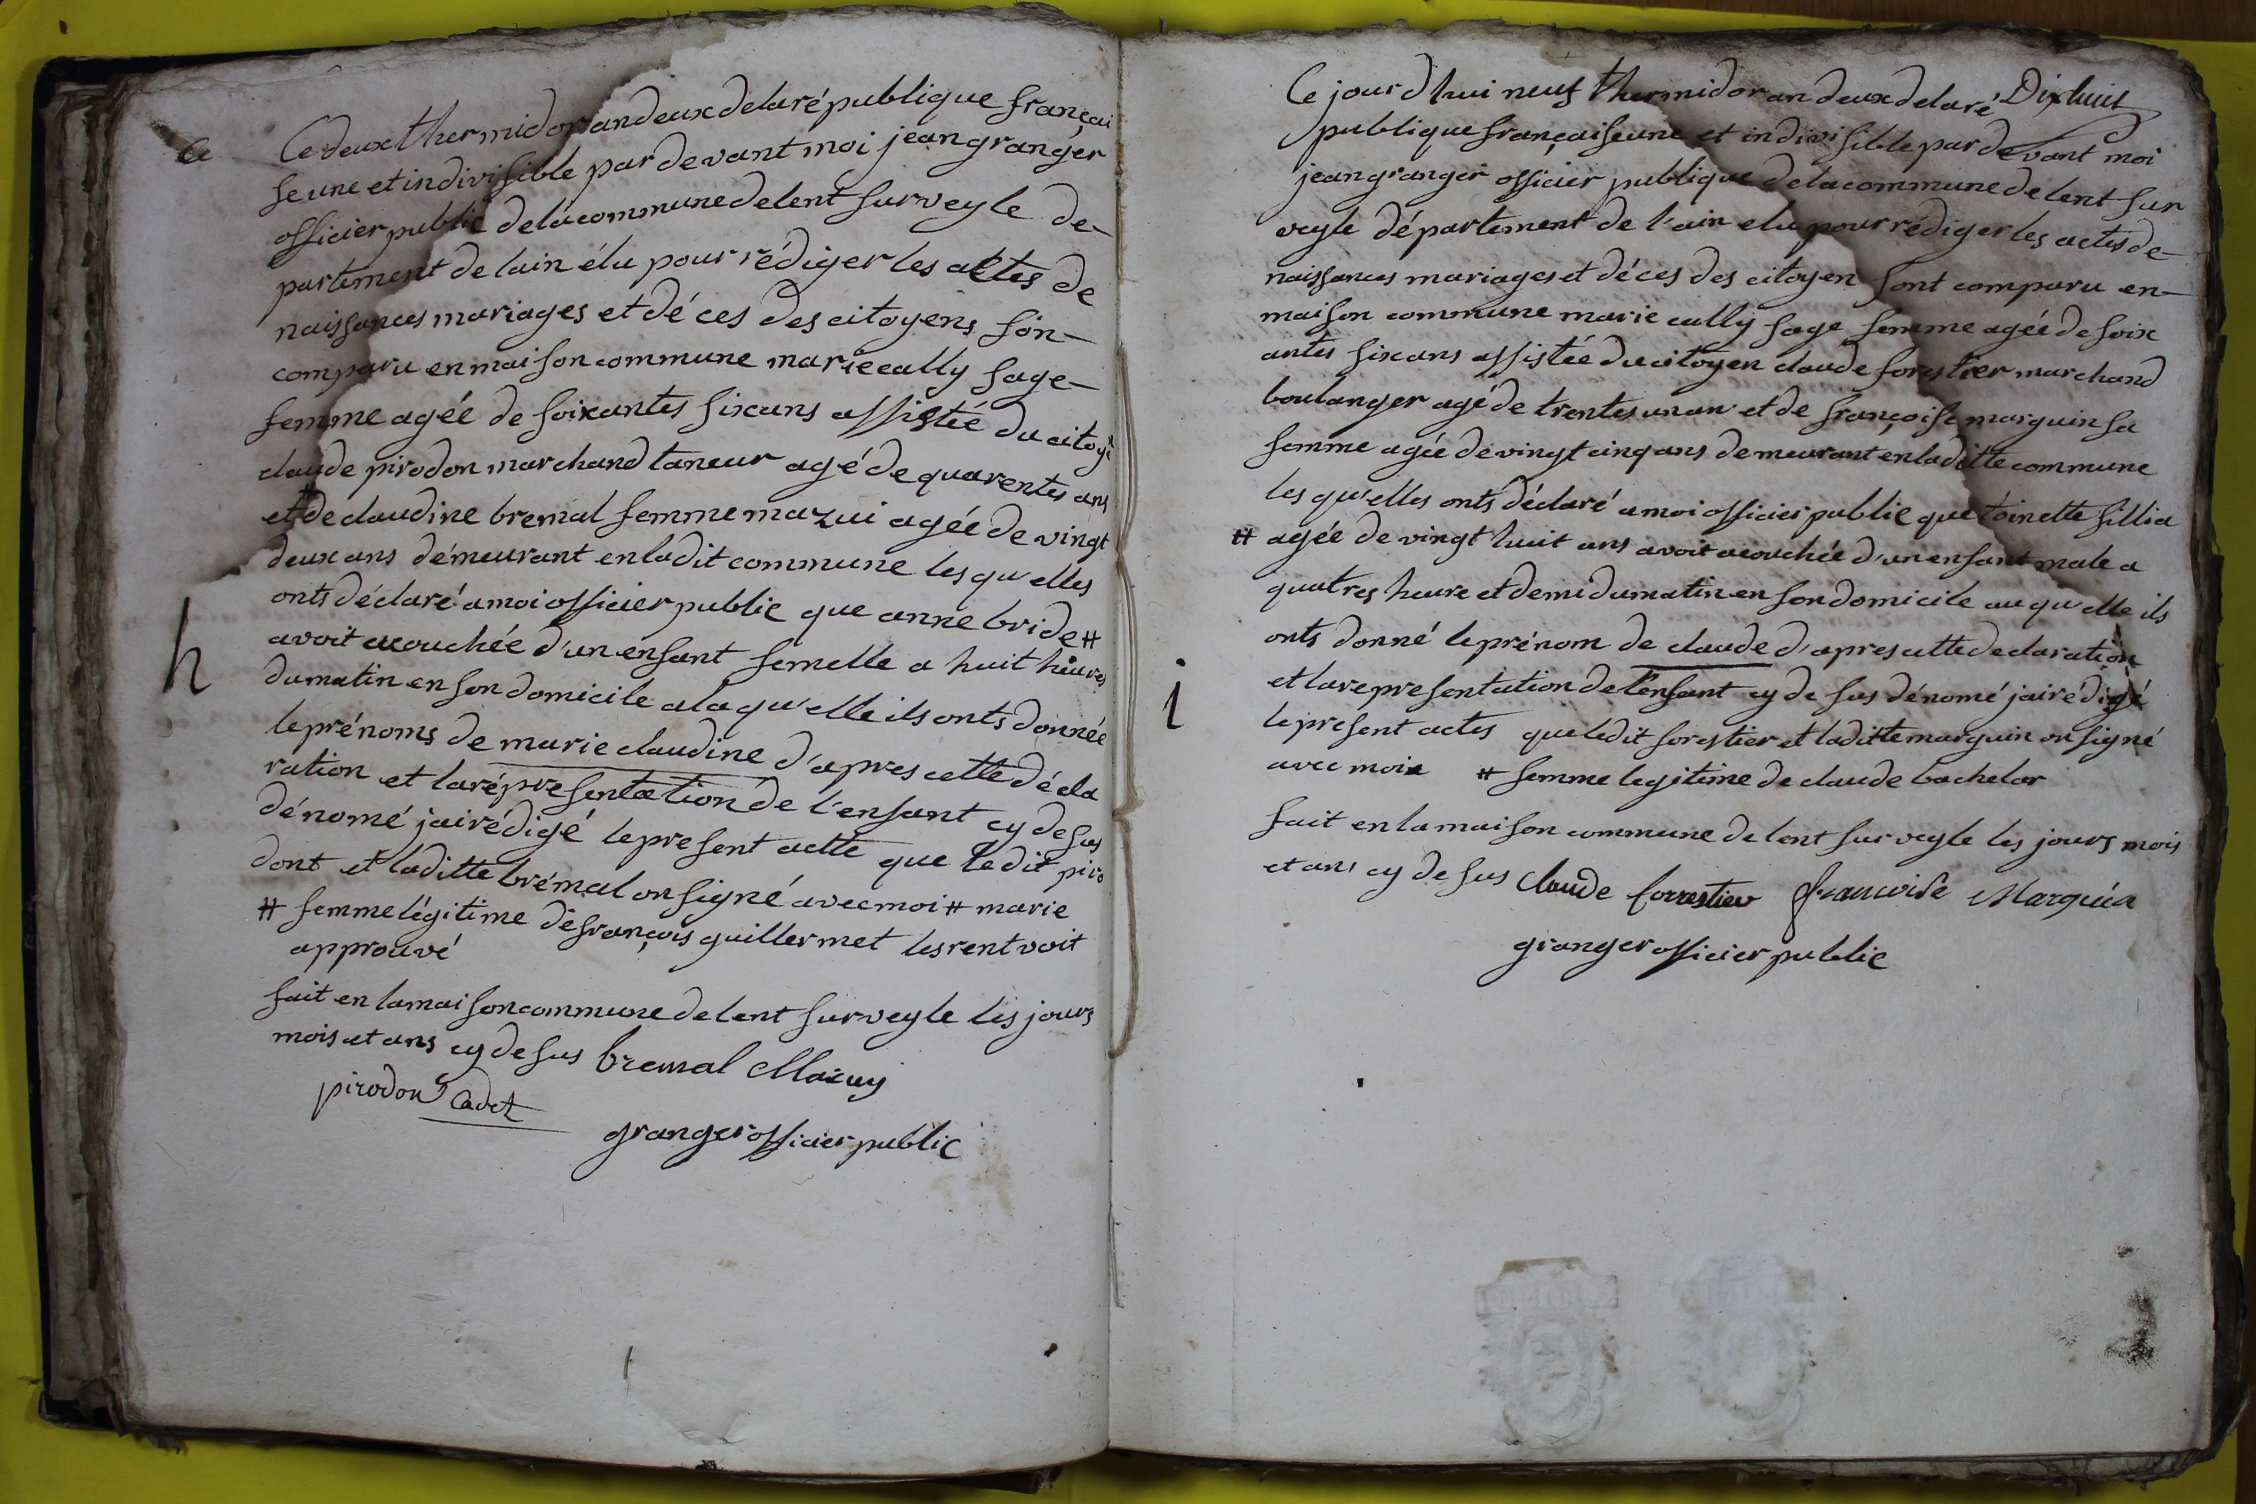 Ce
Ce deux thermidor an deux de la république françai
se une et indivisible par devant moi jean granger
officier public de la commune de lent sur veyle de-
partement de lain élu pour rédiger les actes de
naissances mariages et déces des citoyens son-
comparu en maison commune marie cally sage-
femme agée de soixantes six ans assistée du citoyē
claude pirodon marchand taneur agé de quarentes ans
et de claudine bremal femme mazui agée de vingt
deux ans démeurant en ladit commune les qu'elles
onts déclaré a moi officier public que anne bride #
avoit acouchée d'un enfant femelle a huit heures
du matin en son domicile a la qu'elle ils onts donnée
h
le prénoms de marie claudine d'apres cette décla
ration et la répresentation de l'enfant cy desus
dénomé jai rédigé le present acte que le dit piro
dont et laditte brémal on signé avec moi # marie
# femme légitime de françois guillermet les rentvoit
approuvé
fait en la maison commune de lent sur veyle les jours
mois et ans cy desus bremal Mazuy
pirodon Cadet
granger officier public
Dixhuit
Ce jourd'hui neuf thermidor an deux de la ré
publique française une et indivisible par devant moi
jean granger officier publique de la commune de lent sur
veyle département de l'ain elu pour rédiger les actes de-
naissances mariages et déces des citoyen sont comparu en-
maison commune marie cally sage femme agée de soix
antes six ans assistée du citoyen claude forestier marchand
boulanger agé de trentes un an et de françoise marguin sa
femme agée de vingt cinq ans demeurant en laditte commune
les qu'elles onts déclaré a moi officier public que toinette fillia
# agée de vingt huit ans avoit acouchée d'un enfant male a
quatres heure et demi du matin en son domicile au qu'elle ils
onts donné le prénom de claude d'apres cette declaration
i
et la representation de l'enfant cy desus dénomé jai rédigé
le present actes que ledit forestier et laditte marguin on signé
avec moi # femme legitime de claude bachelar
fait en la maison commune de lent sur veyle les jours mois
et ans cy desus Claude forrestier francoise Marguin
granger officier public